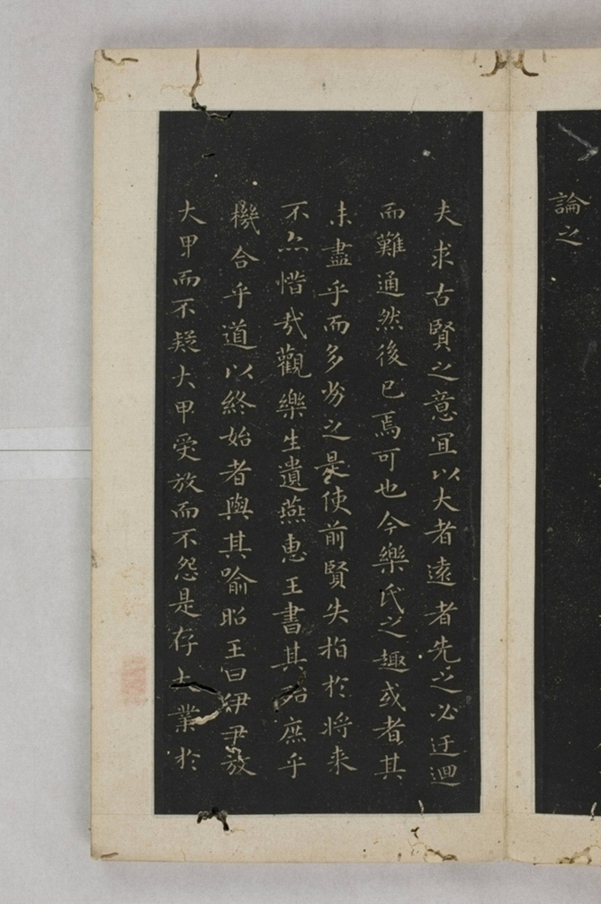 論之
夫求古賢之意宜以大者遠者先之必迂迴
而難通然後已焉可也今樂氏之趣或者其
未盡乎而多劣之是使前賢失指於将来
不亦惜哉觀樂生遺燕惠王書其殆庶乎
機合乎道以終始者與其喻昭王曰伊尹放
大甲而不疑大甲受放而不怨是存大業於